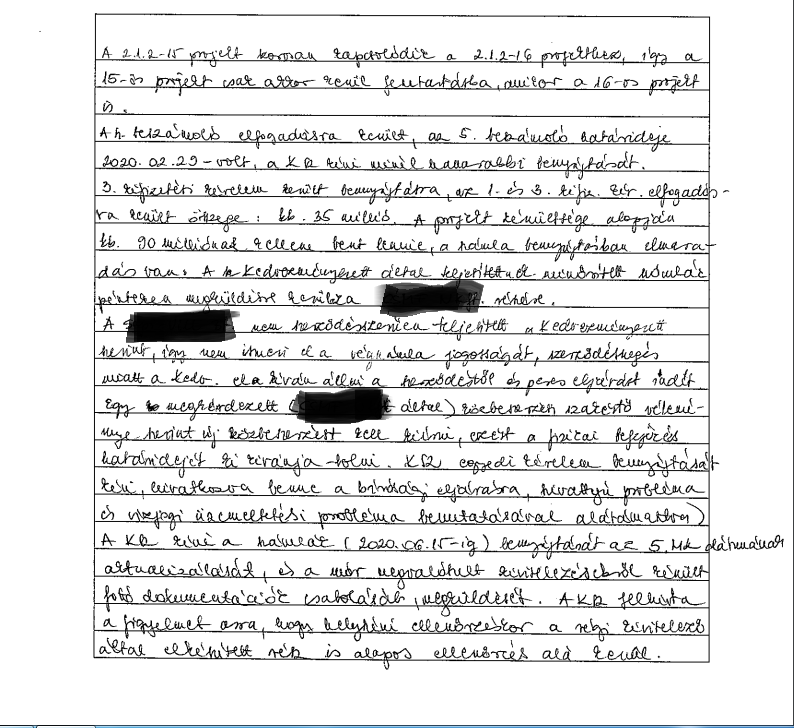 A 2.1.2-15 projekt szorosan kapcsolódik a 2.1.2-16 projekthez, így a
15-ös projekt csak akkor kerül fenntartásba, amikor a 16-os projekt
is.
A 4. beszámoló elfogadásra került, az 5. beszámoló határideje
2020.02.29-volt, a KSZ kéri minél hamarabbi benyújtását.
3. kifizetési kérelem került benyújtásra, az 1. és 3. kifiz. kér. elfogadás-
ra került összege: kb. 35 millió. A projekt készültsége alapján
kb. 90 milliónak kellene bent lennie, a számla benyújtásban elmara-
dás van. A Kedvezményezett által kijelentett minősített számlák
pénteken megküldésre kerültek részére.
A nem szerződésszerűen teljesített a Kedvezményezett
szerint, így nem ismeri el a végszámla jogosságát, szerződésszegés
miatt a Kedv. el kíván állni a szerződéstől és peres eljárást indít.
Egy megkérdezett ( által) közbeszerzési szakértő vélemé-
nye szerint új közbeszerzést kell kiírni, ezért a fizikai befejezés
határidejét ki kívánja tolni. KSZ egyedi kérelem benyújtását
kéri, hivatkozva benne a bírósági eljárásra, szivattyú probléma
és vízjogi üzemeltetési probléma bemutatásával alátámasztva)
A KSZ kéri a számlák (2020.06.15-ig) benyújtását az 5. Mk
aktualizálását, és a már megvalósult kivitelezésekről készült
fotó dokumentációk csatolását, megküldését. A KSZ felhívta
a figyelmet arra, hogy helyszíni ellenőrzéskor a régi kivitelező
által elkészített rész is alapos ellenőrzés alá kerül.